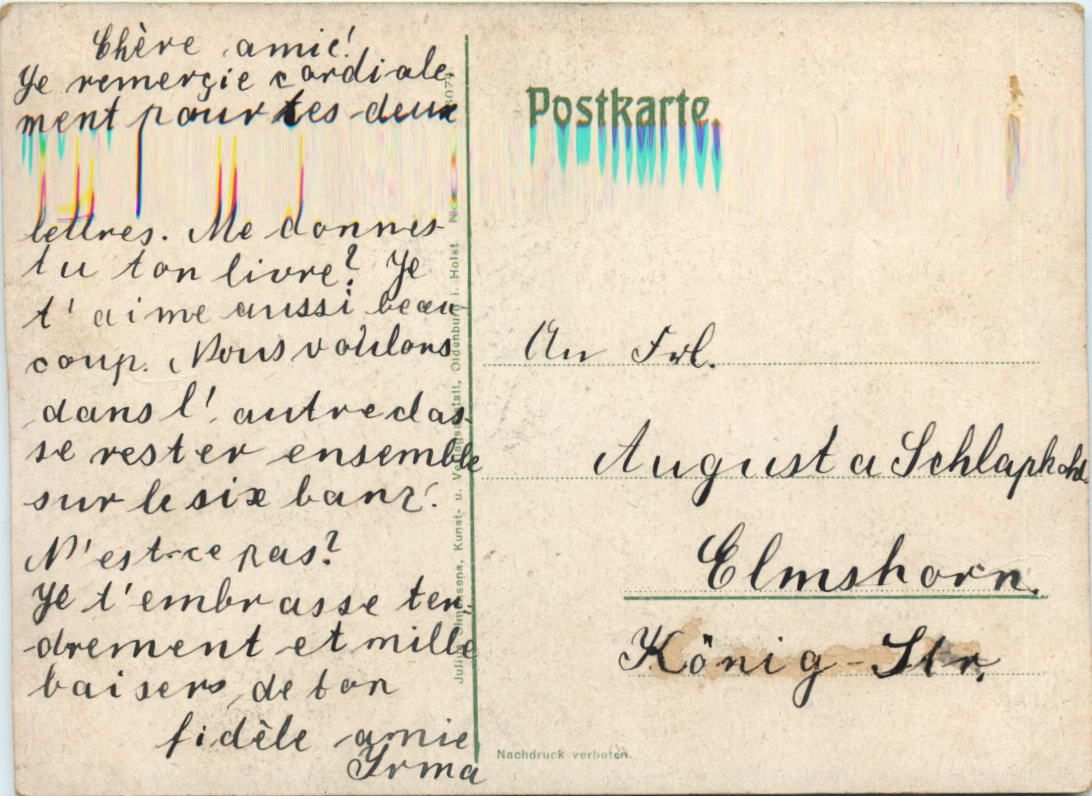 Chère amie!
Je remerçie cordiale-
ment pour tes deux
lettres. Me donnes-
tu ton livre? Je
t'aime aussi beau-
coup. Nous voulons
dans l'autre clas-
se rester ensemble
sur le six banc.
N'est-ce pas?
Je t'embrasse ten-
drement et mille
baisers de ton
fidèle amie
Irma
Postkarte.
An Frl.
Augusta Schlapkohl
Elmshorn.
König-Str.
Kunst- u. Verlagsanstalt, Oldenburg i. Holst.
Nachdruck verboten.